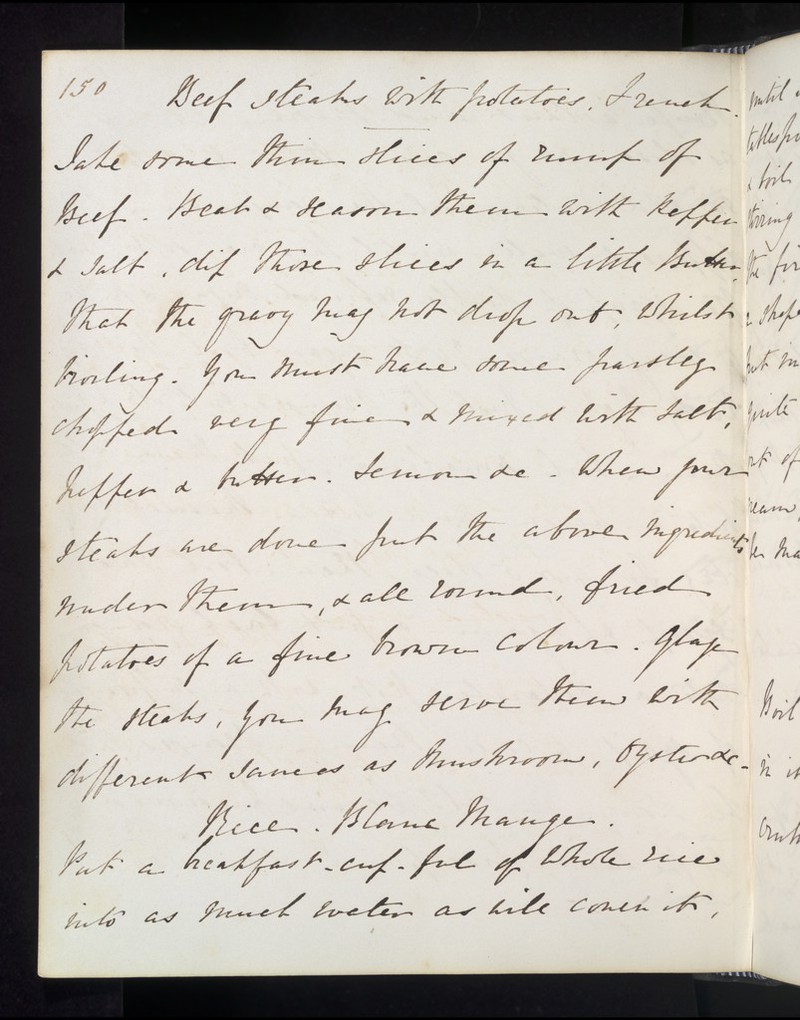 150
Beef steaks with potatoes, French.
Take some thin slices of rump of
Beef. Beat & season them with Pepper
& Salt, dip those slices in a little Butter,
that the gravy may not drop out, whilst
broiling. You must have some parsley
chopped very fine & mixed with salt,
pepper & butter. Lemon &c. When your
steaks are done put the above ingredients
under them, & all round, fried
potatoes of a fine brown colour. Glaze
the steaks, you may serve them with
different sauces as Mushroom, Oyster &c.
Rice. Blanc Mange.
Put a breakfast-cup-ful of Whole rice
into as much water as will cover it,
until
& boil
stirring
the
a shape
put in
quite
out of
cream,
Boil
in it